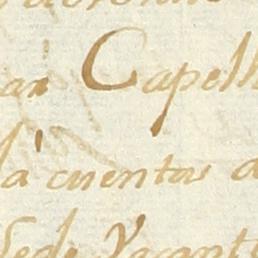 an Capell
la cuentas a
Sede Vacant